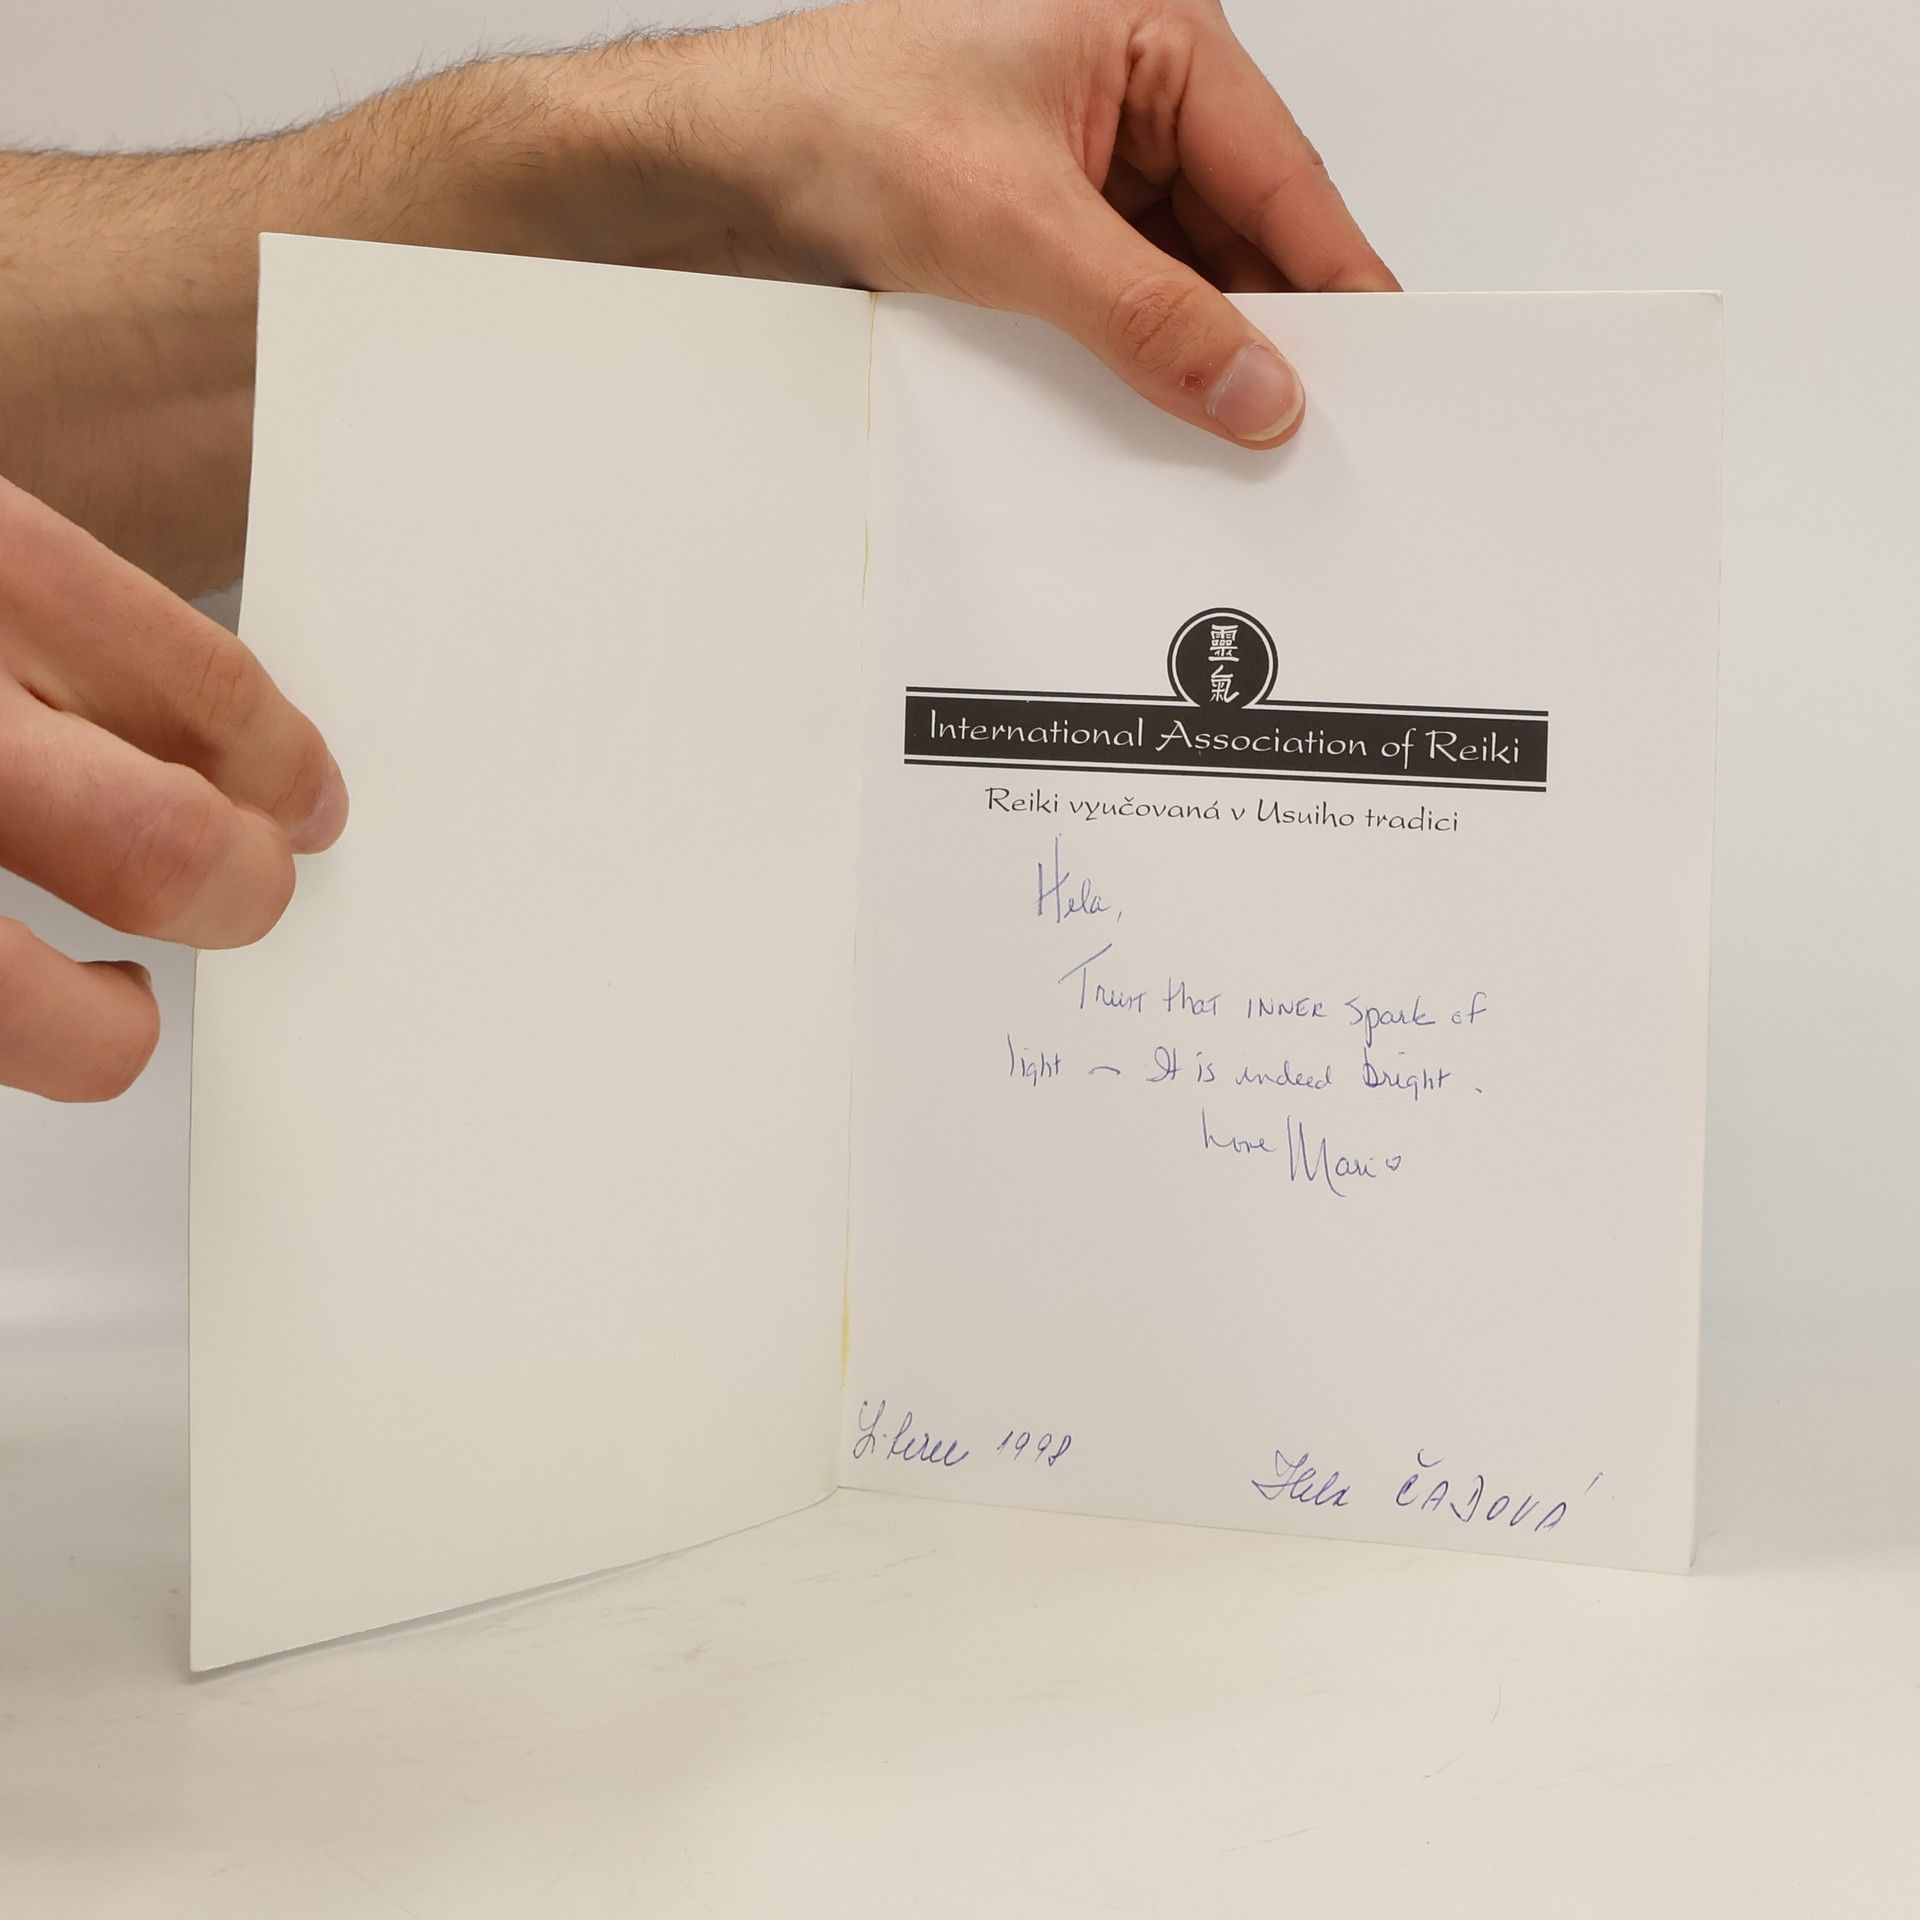 靈氣
International Association of Reiki
Reiki vyučovaná v Usuiho tradici
Hela,
Trust that INNER spark of
light – It is indeed bright.
Love Mari♡
Liberec 1998
Hela ČADOVÁ